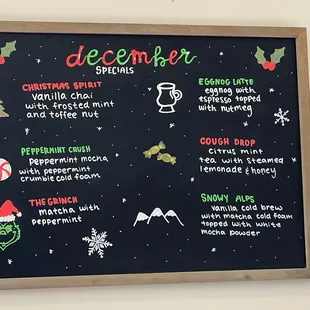 december
SPECIALS
CHRISTMAS SPIRIT
vanilla chai
with frosted mint
and toffee nut
PEPPERMINT CRUSH
Peppermint mocha
with peppermint
crumble cold foam
THE GRINCH
matcha with
peppermint
EGGNOG LATTE
eggnog with
espresso topped
with nutmeg
COUGH DROP
citrus mint
tea with steamed
lemonade & honey
SNOWY ALPS
vanilla cold brew
with matcha cold foam
topped with white
mocha powder